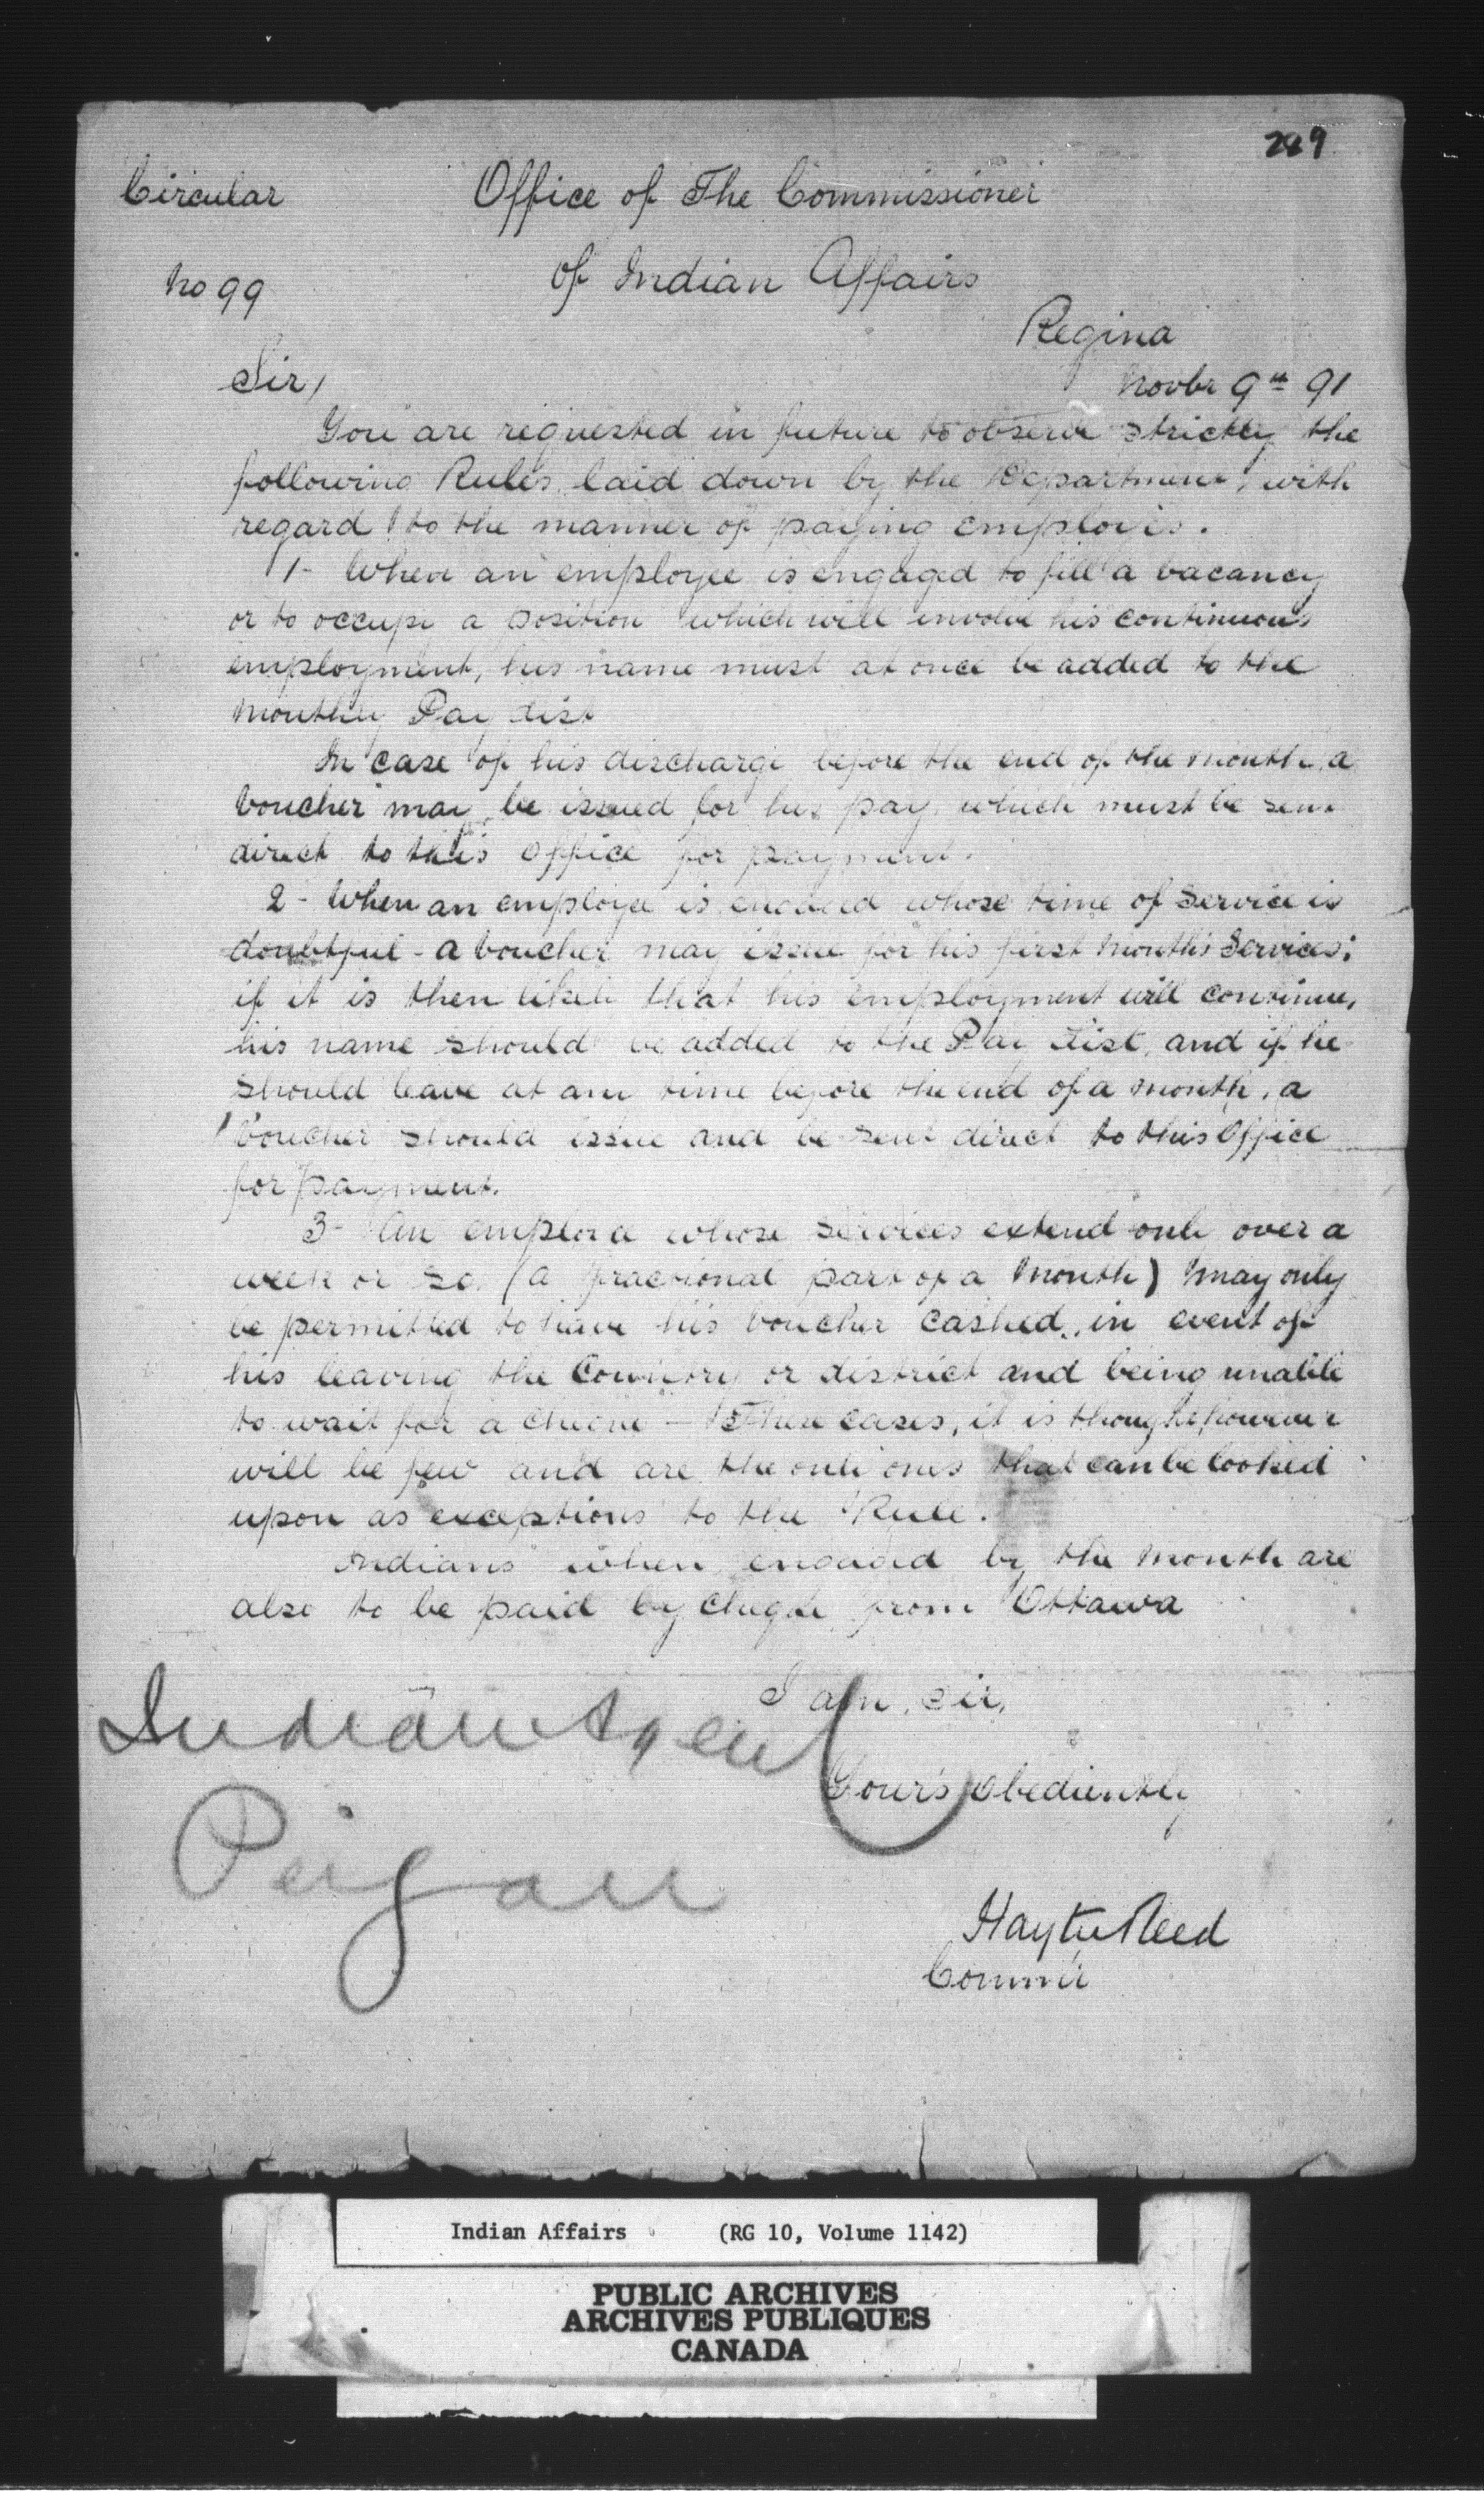 229
Circular
Office of The Commissioner
of Indian Affairs
No 99
Regina
Sir,
Novbr 9th 91
You are requested in future to observe strictly the
following Rules laid down by the Department, with
regard to the manner of paying employés.
1- When an employee is engaged to fill a vacancy
or to occupy a position which will involve his continuous
employment, his name must at once be added to the
Monthly Pay List
In case of his discharge before the end of the month, a
voucher may be issued for his pay, which must be sent
direct to this office for payment.
2- When an employe is engaged whose time of service is
doubtful - a voucher may issue for his first month's services;
if it is then likely that his employment will continue,
his name should be added to the Pay List, and if he
should leave at any time before the end of a month, a
voucher should issue and be sent direct to this Office
for payment.
3- An employee whose services extend only over a
week or so (a fractional part of a Month) may only
be permitted to have his voucher cashed, in event of
his leaving the Country or district and being unable
to wait for a cheque - These cases, it is thought, however
will be few and are the only ones that can be looked
upon as exceptions to the Rule.
Indians when engaged by the month are
also to be paid by cheque from Ottawa
I am, Sir,
Indian Agent
Your's obediently
Peigan
Hayter Reed
Commr
Indian Affairs (RG 10, Volume 1142)
PUBLIC ARCHIVES
ARCHIVES PUBLIQUES
CANADA